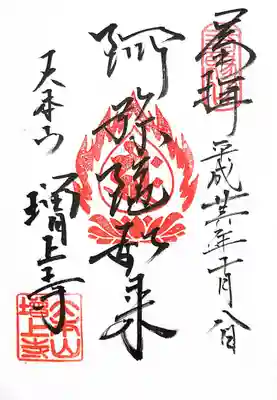 拝
平成廿年十月八日
阿弥陀如来
大本山
増上寺
大本山
増上寺